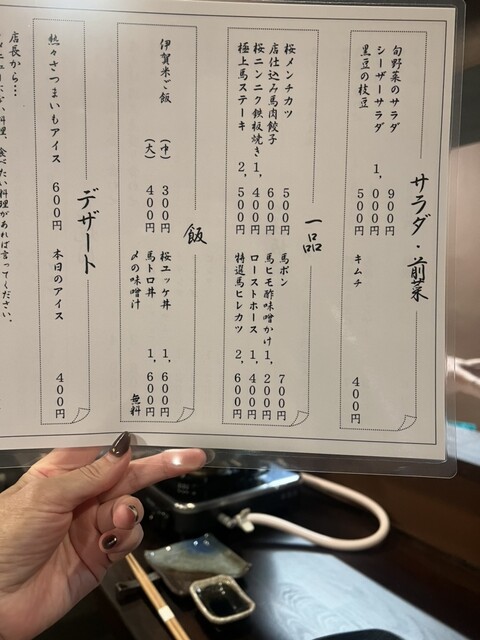 サラダ・前菜
旬野菜のサラダ 900円
シーザーサラダ 1,000円
黒豆の枝豆 500円
キムチ 400円
一品
桜メンチカツ 500円
店仕込み馬肉餃子 600円
桜ニンニク鉄板焼き 1,400円
極上馬ステーキ 2,500円
馬ポン 700円
馬ヒモ酢味噌かけ 1,200円
ローストホース 1,400円
特選馬ヒレカツ 2,600円
飯
伊賀米ご飯 (中) 300円
(大) 400円
桜ユッケ丼 1,600円
馬トロ丼 1,600円
〆の味噌汁 無料
デザート
熱々さつまいもアイス 600円
本日のアイス 400円
店長から…
メニューにない料理、食べたい料理があれば言ってください。